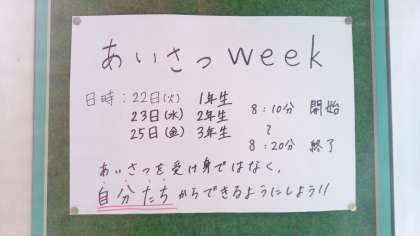 あいさつweek
日時：22日(火) 1年生
23日(水) 2年生 8:10分 開始
25日(金) 3年生 〜
8:20分 終了
あいさつを受け身ではなく、
自分たちからできるようにしよう!!